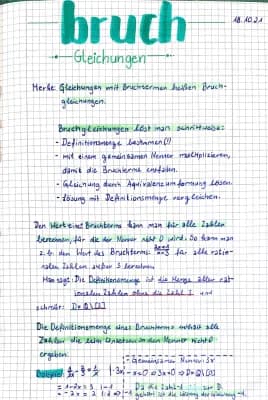 bruch
18.10.21
Gleichungen
Merke: Gleichungen mit Bruchtermen heißen Bruch-
gleichungen.
Bruchgleichungen löst man schrittweise:
- Definitionsmenge bestimmen(!)
- mit einem gemeinsamen Nenner multiplizieren,
damit die Bruchterme entfallen.
- Gleichung durch Äquivalenzumformung lösen.
- Lösung mit Definitionsmenge vergleichen.
Den Wert eines Bruchterms kann man für alle Zahlen
berechnen, für die der Nenner nicht 0 wird. So kann man
z.B. den Wert des Bruchterms für alle ratio-
nalen Zahlen außer 3 berechnen.
Man sagt: Die Definitionsmenge ist die Menge aller rat-
ionalen Zahlen ohne die Zahl 3 und
schreibt: D=Q\{3}
Die Definitionsmenge eines Bruchterms enthält alle
Zahlen die beim Einsetzen in den Nenner nicht 0
ergeben.
- Gemeinsamer Nenner: 3x
- x=0 → 3x=0 → D=Q\{0}
= 1-2x = 3 |-1
= -2x = 2
Da die Zahl -1 zur D
gehört ist die Lösung der Gleichung -1.